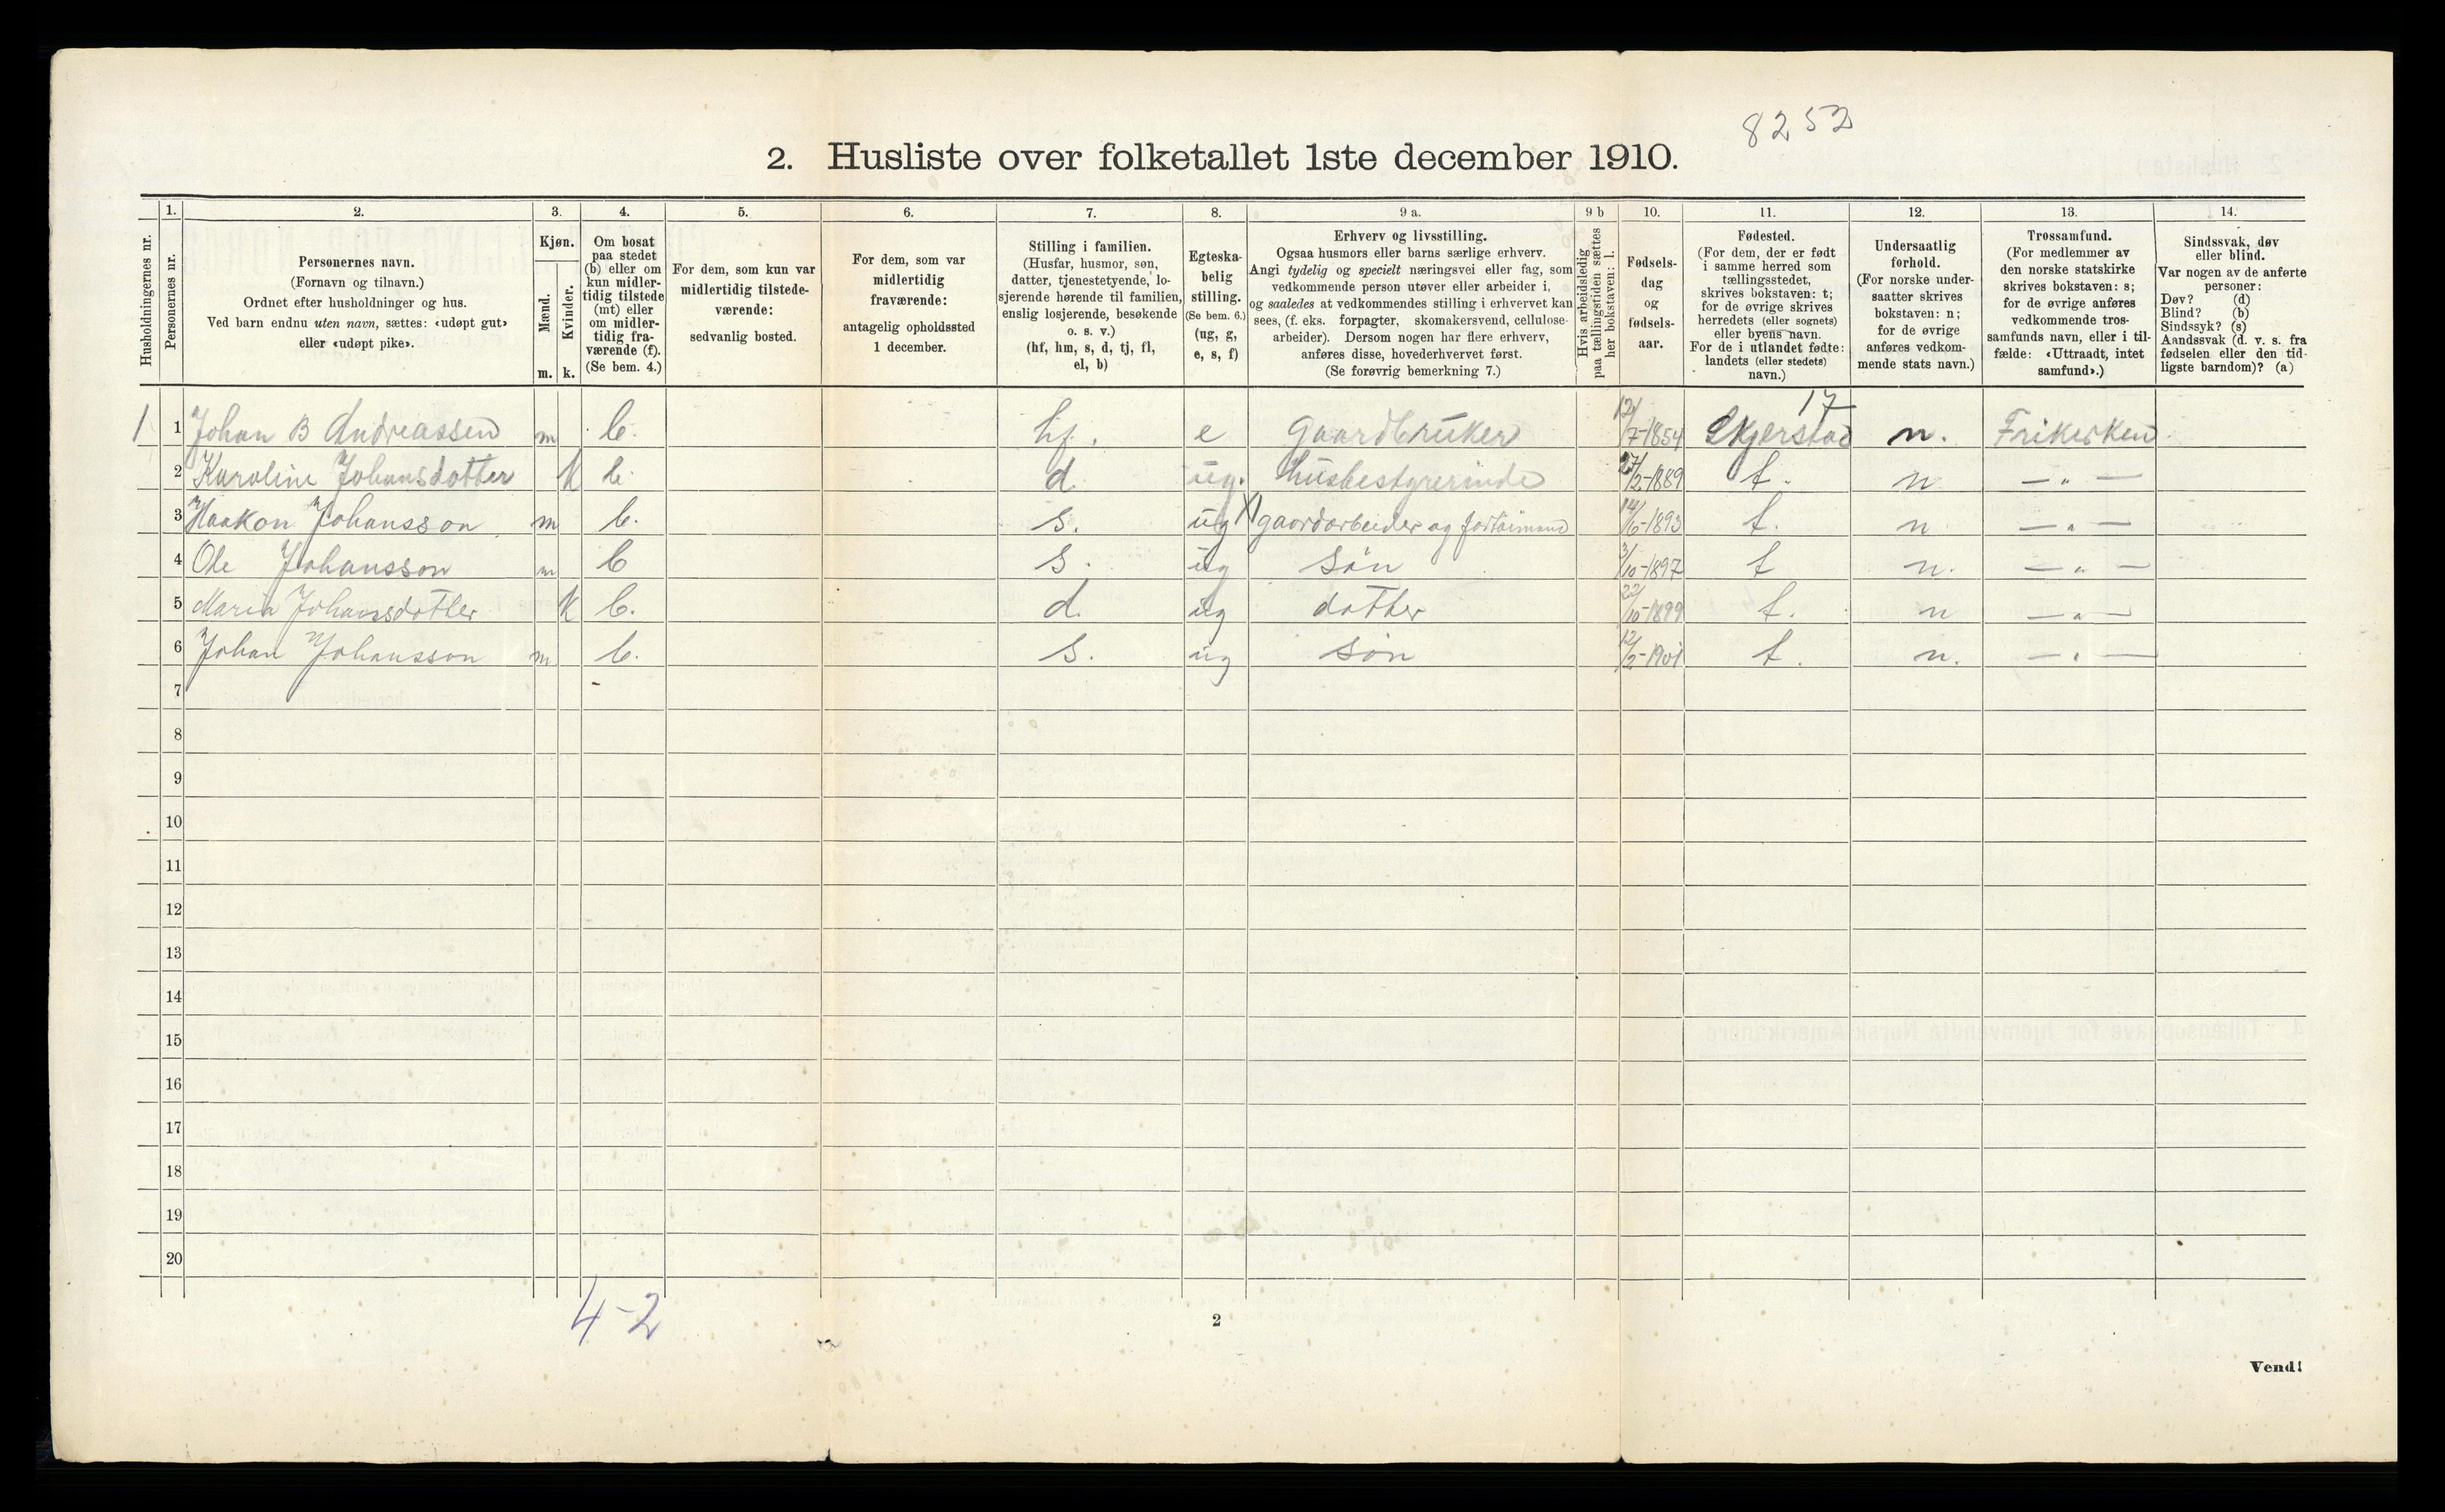 8252
2. Husliste over folketallet 1ste december 1910.
Husholdningernes nr.
1. Personernes nr.
2. Personernes navn.
(Fornavn og tilnavn.)
Ordnet efter husholdninger og hus.
Ved barn endnu uten navn, sættes: «udøpt gut»
eller «udøpt pike».
3. Kjøn.
Mænd. Kvinder.
m. k.
4. Om bosat
paa stedet
(b) eller om
kun midler-
tidig tilstede
(mt) eller
om midler-
tidig fra-
værende (f).
(Se bem. 4.)
5. For dem, som kun var
midlertidig tilstede-
værende:
sedvanlig bosted.
6. For dem, som var
midlertidig
fraværende:
antagelig opholdssted
1 december.
7. Stilling i familien.
(Husfar, husmor, søn,
datter, tjenestetyende, lo-
sjerende hørende til familien,
enslig losjerende, besøkende
o. s. v.)
(hf, hm, s, d, tj, fl,
el, b)
8. Egteska-
belig
stilling.
(Se bem. 6.)
(ug, g,
e, s, f)
9 a. Erhverv og livsstilling.
Ogsaa husmors eller barns særlige erhverv.
Angi tydelig og specielt næringsvei eller fag, som
vedkommende person utøver eller arbeider i,
og saaledes at vedkommendes stilling i erhvervet kan
sees, (f. eks. forpagter, skomakersvend, cellulose-
arbeider). Dersom nogen har flere erhverv,
anføres disse, hovederhvervet først.
(Se forøvrig bemerkning 7.)
9 b Hvis arbeidsledig
paa tællingstiden sættes
her bokstaven: l.
10. Fødsels-
dag
og
fødsels-
aar.
11. Fødested.
(For dem, der er født
i samme herred som
tællingsstedet,
skrives bokstaven: t;
for de øvrige skrives
herredets (eller sognets)
eller byens navn.
For de i utlandet fødte:
landets (eller stedets)
navn.)
12. Undersaatlig
forhold.
(For norske under-
saatter skrives
bokstaven: n;
for de øvrige
anføres vedkom-
mende stats navn.)
13. Trossamfund.
(For medlemmer av
den norske statskirke
skrives bokstaven: s;
for de øvrige anføres
vedkommende tros-
samfunds navn, eller i til-
fælde: «Uttraadt, intet
samfund».)
14. Sindssvak, døv
eller blind.
Var nogen av de anførte
personer:
Døv? (d)
Blind? (b)
Sindssyk? (s)
Aandssvak (d. v. s. fra
fødselen eller den tid-
ligste barndom)? (a)
17
1 1 Johan B Andreassen m b. hf. e Gaardbruker 12/7-1854 Skjerstad n. Frikirken
2 Karoline Johansdotter k b. d. ug. husbestyrerinde 27/2-1889 t. n — „ —
3 Haakon Johansson m b. s. ug X gaardarbeider og 14/6-1893 t. n — „ —
4 Ole Johansson m b s. ug Søn 3/10-1897 t n. — „ —
5 Maria Johansdotter k b. d. ug dotter 22/10-1899 t. n — „ —
6 Johan Johansson m b. s. ug Søn 12/2-1901 t. n. — „ —
7
8
9
10
11
12
13
14
15
16
17
18
19
20
4-2
2
Vend!